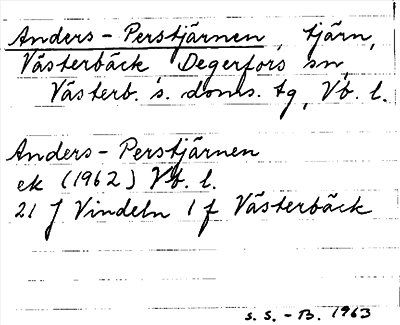 Anders-Perstjärnen, tjärn,
Västerbäck, Degerfors sn,
Västerb. s. doms. tg, Vb. l.
Anders-Perstjärnen
ek (1962) Vb. l.
21 J Vindeln 1 f Västerbäck
S. S. - B. 1963